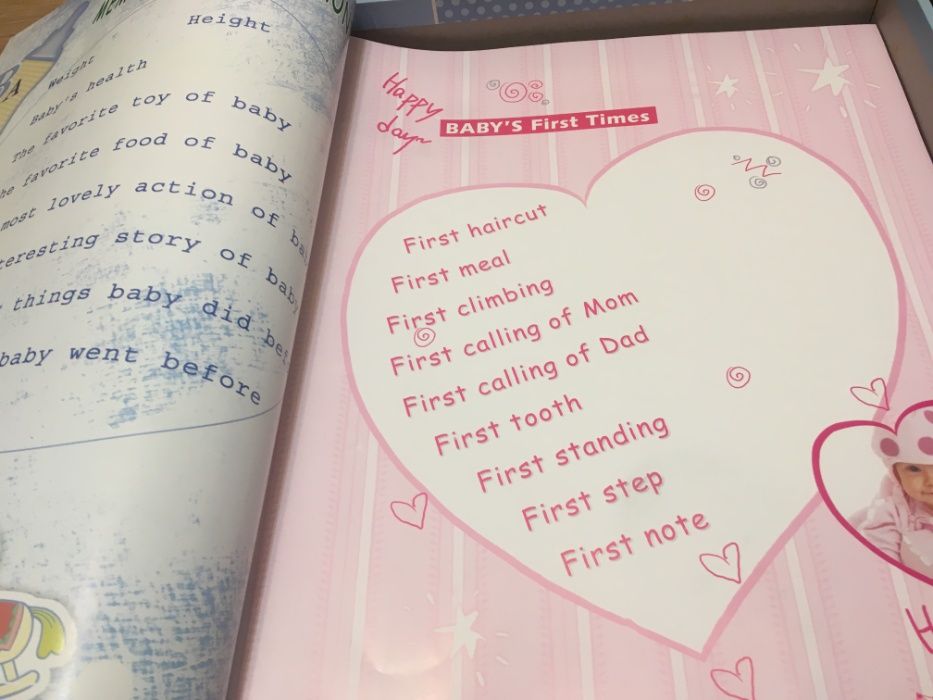 Height
Weight
Baby's health
The favorite toy of baby
favorite food of baby
most lovely action of
story of baby
things baby did
baby went before
Happy
day
BABY'S First Times
First haircut
First meal
First climbing
First calling of Mom
First calling of Dad
First tooth
First standing
First step
First note